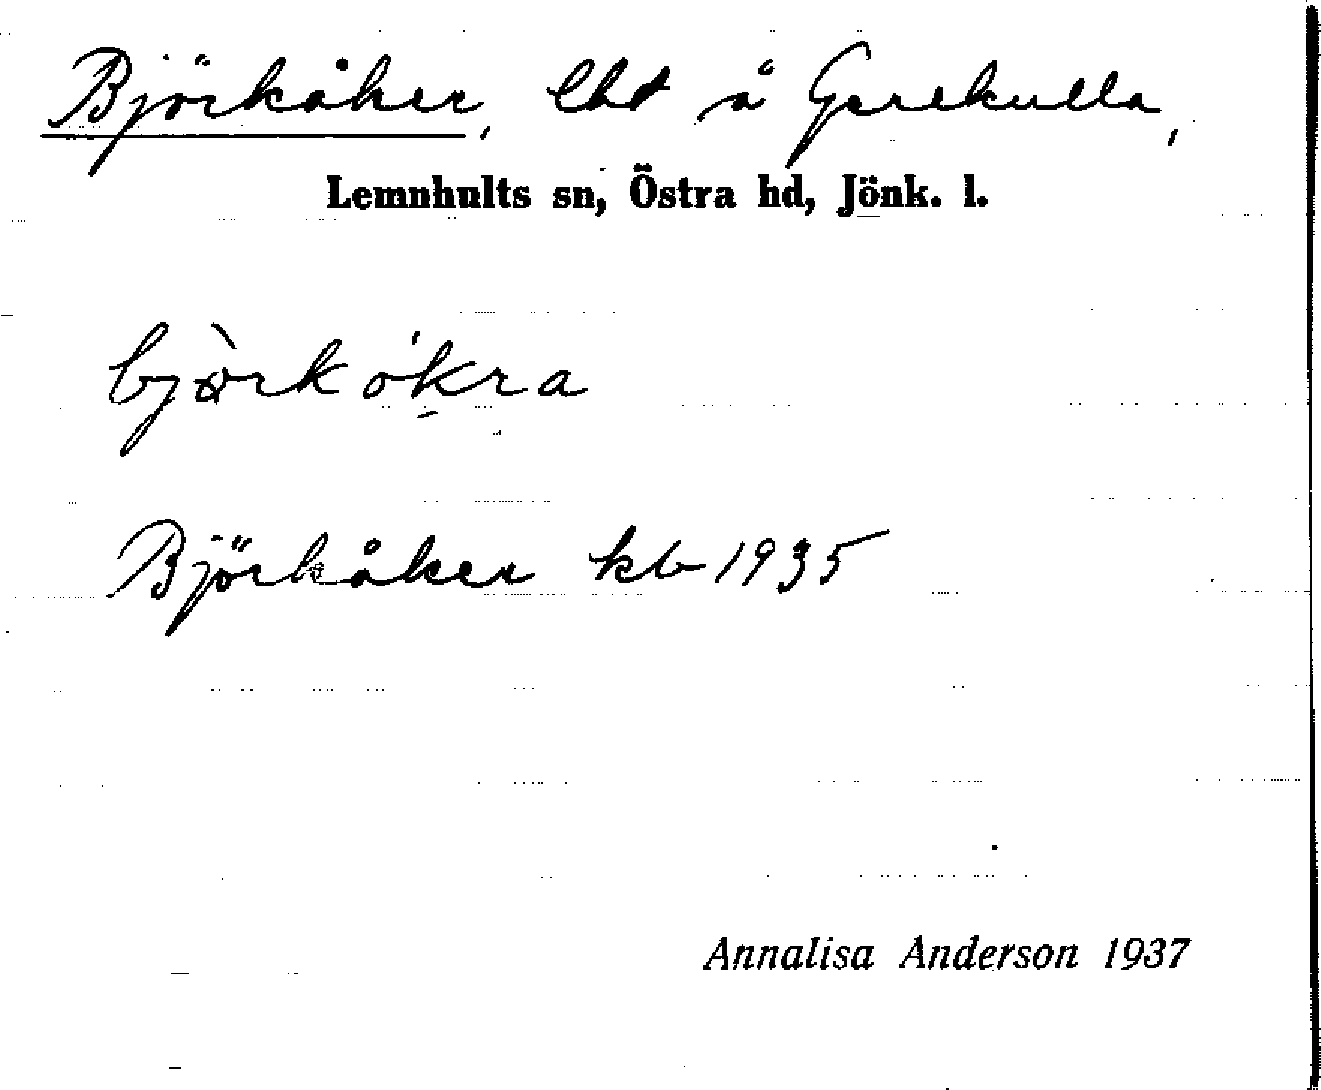 Björkåker, lht å Garekulla,
Lemnhults sn, Östra hd, Jönk. l.
bjö̀rkåkra
Björkåker kb 1935
Annalisa Anderson 1937